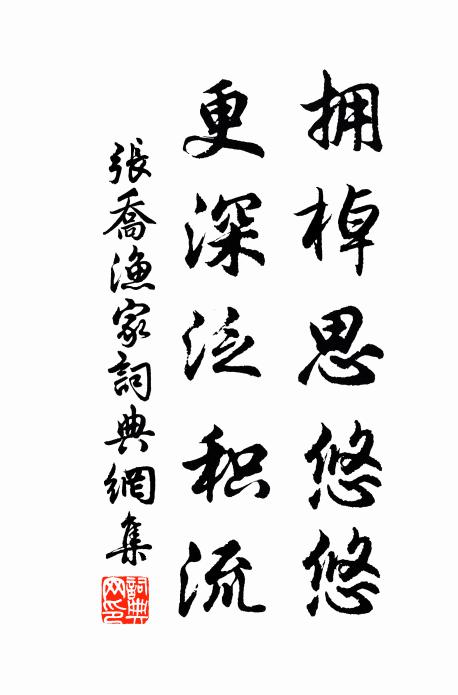 拥棹思悠悠
更深泛积流
張喬漁家詞典網集
詞典网印